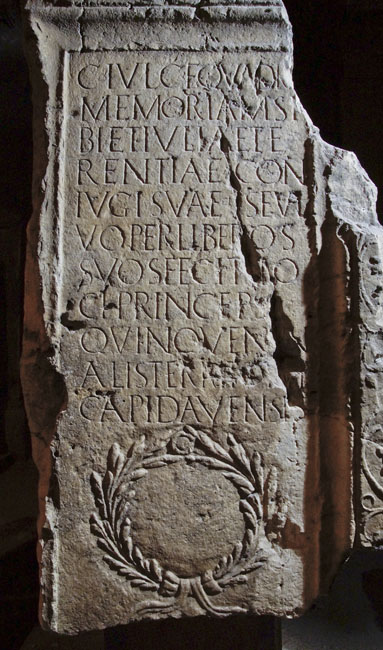 C IVL C F QVADR
MEMORIAM SI
BI ET IVLIAE TE
RENTIAE CON
IVGI SVAE SE VI
VO PER LIBEROS
SVOS FECIT LO
CI PRINCEPS
QVINQVEN
ALIS TERR
CAPIDAVENSI